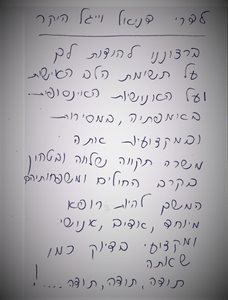 לדר׳ דניאל וייגל היקר
ברצוננו להודות לך
על תשומת הלב האישית
ועל האנושיות האינסופית.
באמפתיה, במסירות
ובמקצועיות אתה
משרה תקווה שלווה ובטחון
בקרב החולים ומשפחותיהם
המשך להיות רופא
מיוחד, אדיב, אנושי
ומקצועי בדיוק כמו
שאתה
תודה, תודה, תודה....!